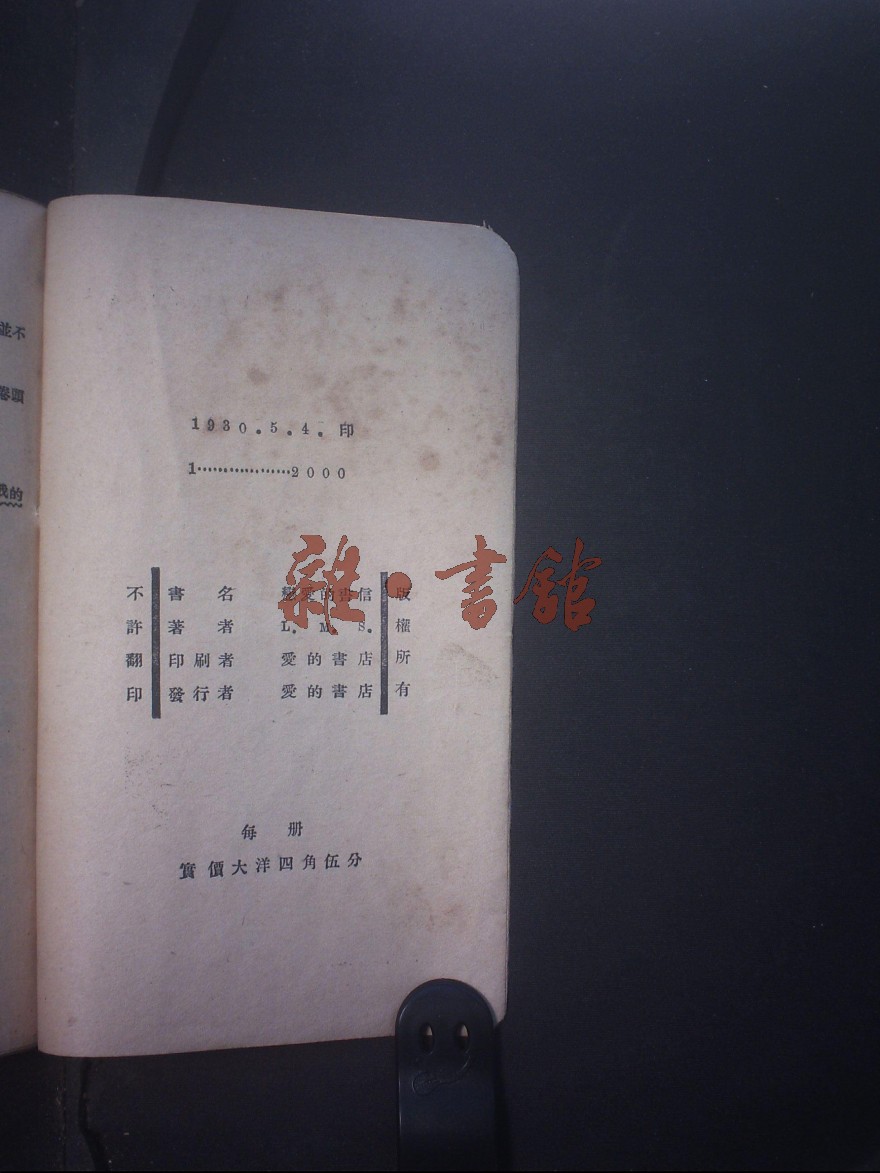 並不
卷頭
我的
1930.5.4.印
1………………2000
版權所有
不許翻印
書名 戀愛的書信
著者 L. M. S.
印刷者 愛的書店
發行者 愛的書店
每册
實價大洋四角伍分
雜·書館